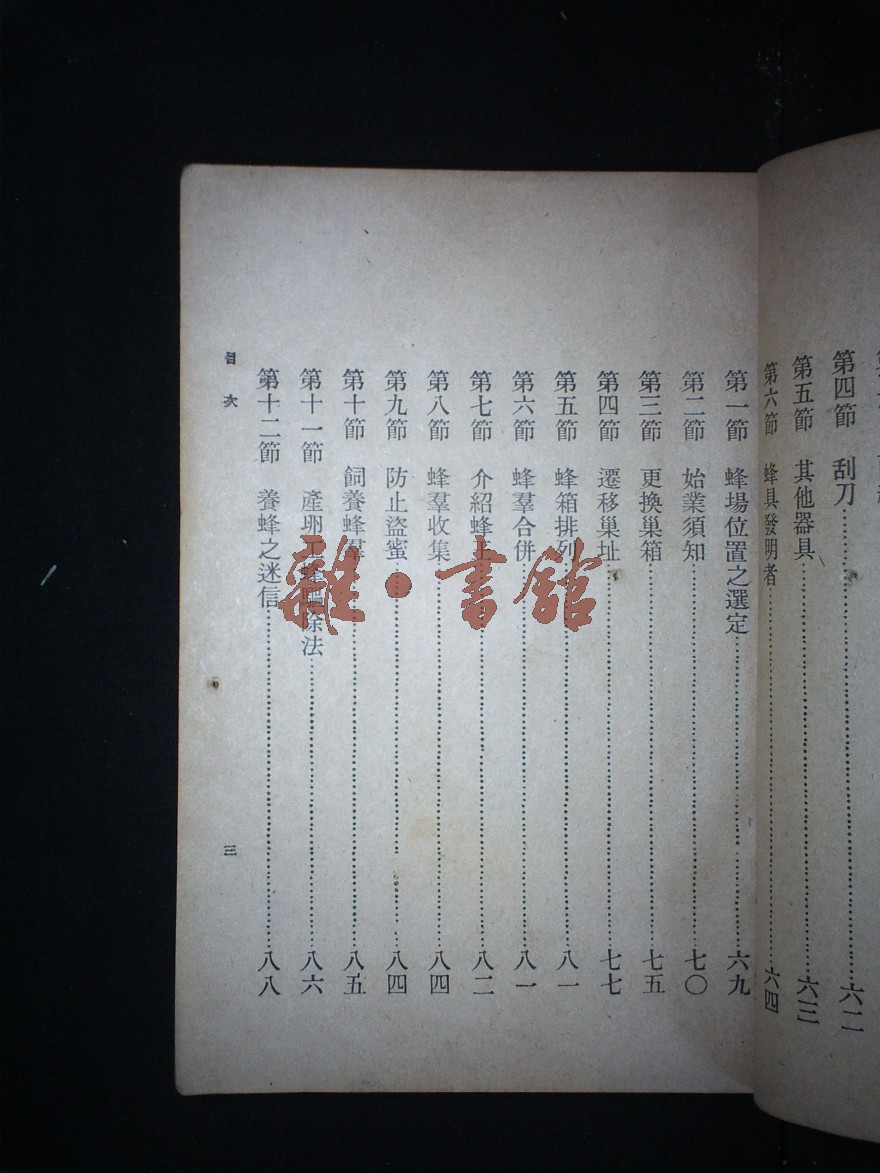 第四節 刮刀……六二
第五節 其他器具……六三
第六節 蜂具發明者……六四
第一節 蜂場位置之選定……六九
第二節 始業須知……七〇
第三節 更換巢箱……七五
第四節 遷移巢址……七七
第五節 蜂箱排列……八一
第六節 蜂羣合併……八一
第七節 介紹蜂王……八二
第八節 蜂羣收集……八四
第九節 防止盜蜜……八四
第十節 飼養蜂羣……八五
第十一節 產卵工蜂驅除法……八六
第十二節 養蜂之迷信……八八
目次
三
雜·書館